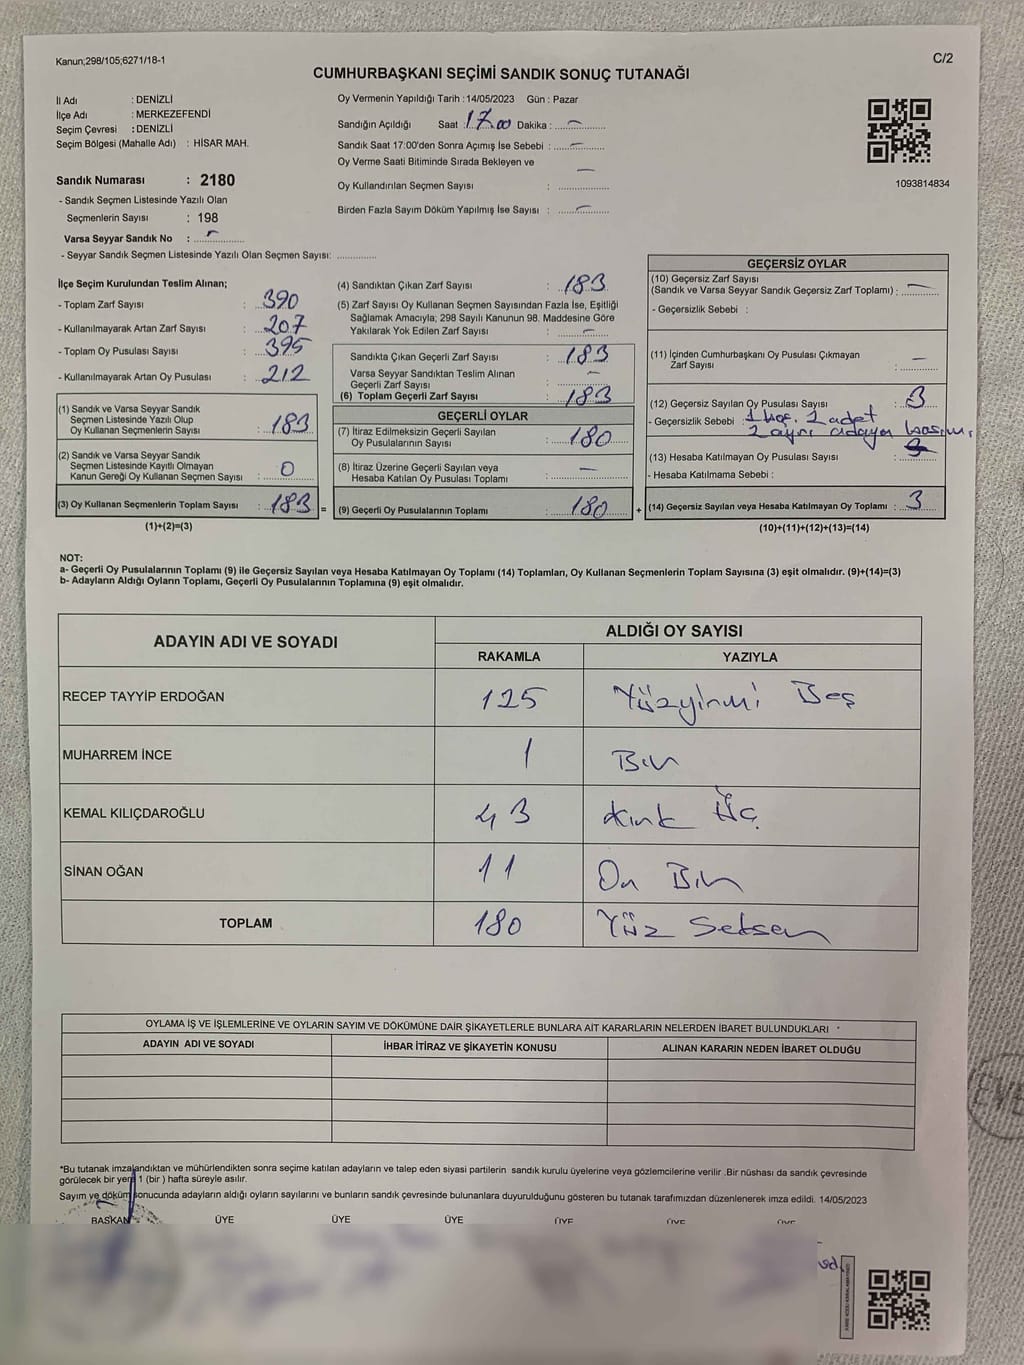 Kanun;298/105;6271/18-1
C/2
CUMHURBAŞKANI SEÇİMİ SANDIK SONUÇ TUTANAĞI
İl Adı : DENİZLİ
İlçe Adı : MERKEZEFENDİ
Seçim Çevresi : DENİZLİ
Seçim Bölgesi (Mahalle Adı) : HİSAR MAH.
Sandık Numarası : 2180
- Sandık Seçmen Listesinde Yazılı Olan
Seçmenlerin Sayısı : 198
Varsa Seyyar Sandık No : –
- Seyyar Sandık Seçmen Listesinde Yazılı Olan Seçmen Sayısı:
Oy Vermenin Yapıldığı Tarih :14/05/2023 Gün : Pazar
Sandığın Açıldığı Saat : 17.00 Dakika : –
Sandık Saat 17:00'den Sonra Açımış İse Sebebi : –
Oy Verme Saati Bitiminde Sırada Bekleyen ve –
Oy Kullandırılan Seçmen Sayısı :
Birden Fazla Sayım Döküm Yapılmış İse Sayısı : –
1093814834
İlçe Seçim Kurulundan Teslim Alınan;
- Toplam Zarf Sayısı : 390
- Kullanılmayarak Artan Zarf Sayısı : 207
- Toplam Oy Pusulası Sayısı : 395
- Kullanılmayarak Artan Oy Pusulası : 212
(1) Sandık ve Varsa Seyyar Sandık
Seçmen Listesinde Yazılı Olup
Oy Kullanan Seçmenlerin Sayısı : 183
(2) Sandık ve Varsa Seyyar Sandık
Seçmen Listesinde Kayıtlı Olmayan
Kanun Gereği Oy Kullanan Seçmen Sayısı : 0
(3) Oy Kullanan Seçmenlerin Toplam Sayısı : 183 =
(1)+(2)=(3)
(4) Sandıktan Çıkan Zarf Sayısı : 183
(5) Zarf Sayısı Oy Kullanan Seçmen Sayısından Fazla İse, Eşitliği
Sağlamak Amacıyla; 298 Sayılı Kanunun 98. Maddesine Göre
Yakılarak Yok Edilen Zarf Sayısı : –
Sandıkta Çıkan Geçerli Zarf Sayısı : 183
Varsa Seyyar Sandıktan Teslim Alınan –
Geçerli Zarf Sayısı :
(6) Toplam Geçerli Zarf Sayısı : 183
GEÇERLİ OYLAR
(7) İtiraz Edilmeksizin Geçerli Sayılan
Oy Pusulalarının Sayısı : 180
(8) İtiraz Üzerine Geçerli Sayılan veya –
Hesaba Katılan Oy Pusulası Toplamı :
(9) Geçerli Oy Pusulalarının Toplamı : 180 +
GEÇERSİZ OYLAR
(10) Geçersiz Zarf Sayısı
(Sandık ve Varsa Seyyar Sandık Geçersiz Zarf Toplamı) : –
- Geçersizlik Sebebi :
(11) İçinden Cumhurbaşkanı Oy Pusulası Çıkmayan –
Zarf Sayısı :
(12) Geçersiz Sayılan Oy Pusulası Sayısı : 3
- Geçersizlik Sebebi : 1 boş. 2 adet
2 ayrı adaya basım,
(13) Hesaba Katılmayan Oy Pusulası Sayısı :
- Hesaba Katılmama Sebebi :
(14) Geçersiz Sayılan veya Hesaba Katılmayan Oy Toplamı : 3
(10)+(11)+(12)+(13)=(14)
NOT:
a- Geçerli Oy Pusulalarının Toplamı (9) ile Geçersiz Sayılan veya Hesaba Katılmayan Oy Toplamı (14) Toplamları, Oy Kullanan Seçmenlerin Toplam Sayısına (3) eşit olmalıdır. (9)+(14)=(3)
b- Adayların Aldığı Oyların Toplamı, Geçerli Oy Pusulalarının Toplamına (9) eşit olmalıdır.
ADAYIN ADI VE SOYADI
ALDIĞI OY SAYISI
RAKAMLA YAZIYLA
RECEP TAYYİP ERDOĞAN 125 Yüzyirmi Beş
MUHARREM İNCE 1 Bir
KEMAL KILIÇDAROĞLU 43 Kırk Üç
SİNAN OĞAN 11 On Bir
TOPLAM 180 Yüz Seksen
OYLAMA İŞ VE İŞLEMLERİNE VE OYLARIN SAYIM VE DÖKÜMÜNE DAİR ŞİKAYETLERLE BUNLARA AİT KARARLARIN NELERDEN İBARET BULUNDUKLARI
ADAYIN ADI VE SOYADI İHBAR İTİRAZ VE ŞİKAYETİN KONUSU ALINAN KARARIN NEDEN İBARET OLDUĞU
*Bu tutanak imzalandıktan ve mühürlendikten sonra seçime katılan adayların ve talep eden siyasi partilerin sandık kurulu üyelerine veya gözlemcilerine verilir .Bir nüshası da sandık çevresinde
görülecek bir yere 1 (bir ) hafta süreyle asılır.
Sayım ve döküm sonucunda adayların aldığı oyların sayılarını ve bunların sandık çevresinde bulunanlara duyurulduğunu gösteren bu tutanak tarafımızdan düzenlenerek imza edildi. 14/05/2023
BAŞKAN ÜYE ÜYE ÜYE ÜYE ÜYE ÜYE